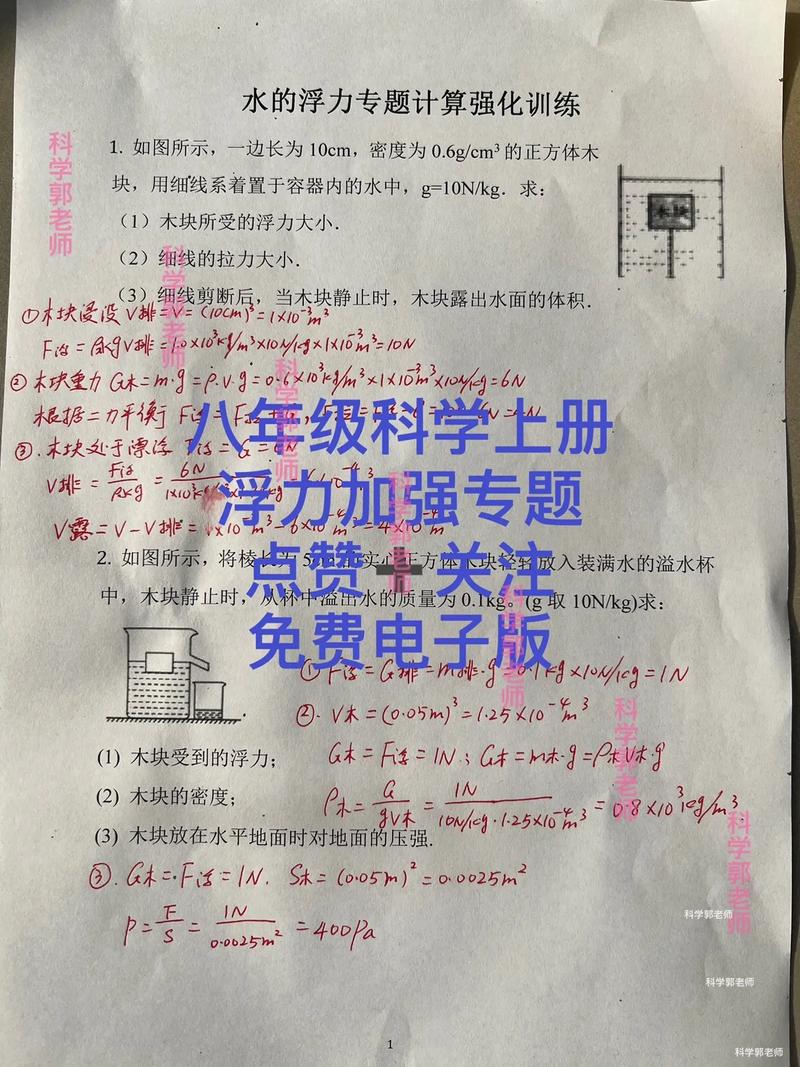 水的浮力专题计算强化训练
1. 如图所示，一边长为 10cm，密度为 0.6g/cm³ 的正方体木
块，用细线系着置于容器内的水中，g=10N/kg．求：
（1）木块所受的浮力大小．
（2）细线的拉力大小．
（3）细线剪断后，当木块静止时，木块露出水面的体积．
木块
①木块浸没 V排=V=(10cm)³=1×10⁻³m³
F浮=ρ水gV排=1.0×10³kg/m³×10N/kg×1×10⁻³m³=10N
②木块重力 G木=m·g=ρ·V·g=0.6×10³kg/m³×1×10⁻³m³×10N/kg=6N
根据二力平衡 F浮=F
③.木块处于漂浮 F浮=G=6N
V排=F浮/ρ水g=6N/
V露=V-V排=1×10⁻³m³-6×10⁻⁴m³=4×10⁻⁴m³
八年级科学上册
浮力加强专题
点赞➕关注
免费电子版
2. 如图所示，将棱长为 5cm 的实心正方体木块轻轻放入装满水的溢水杯
中，木块静止时，从杯中溢出水的质量为 0.1kg。(g 取 10N/kg)求：
①F浮=G排=m排·g=0.1kg×10N/kg=1N
②.V木=(0.05m)³=1.25×10⁻⁴m³
(1) 木块受到的浮力；
G木=F浮=1N；G木=m木·g=ρ木V木·g
(2) 木块的密度；
ρ木=G/gV木=1N/10N/kg·1.25×10⁻⁴m³=0.8×10³kg/m³
(3) 木块放在水平地面时对地面的压强.
③.G木=F浮=1N. S木=(0.05m)²=0.0025m²
P=F/S=1N/0.0025m²=400Pa
1
科学郭老师
科学郭老师
科学郭老师
科学郭老师
科学郭老师
科学郭老师
科学郭老师
科学郭老师
科学郭老师
科学郭老师